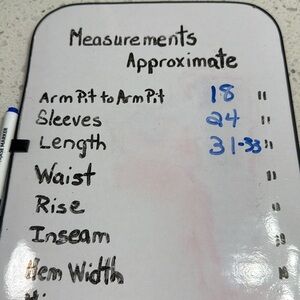 Measurements
Approximate
Arm Pit to Arm Pit 18 "
Sleeves 24 "
Length 31-33"
Waist "
Rise "
Inseam "
Hem Width "